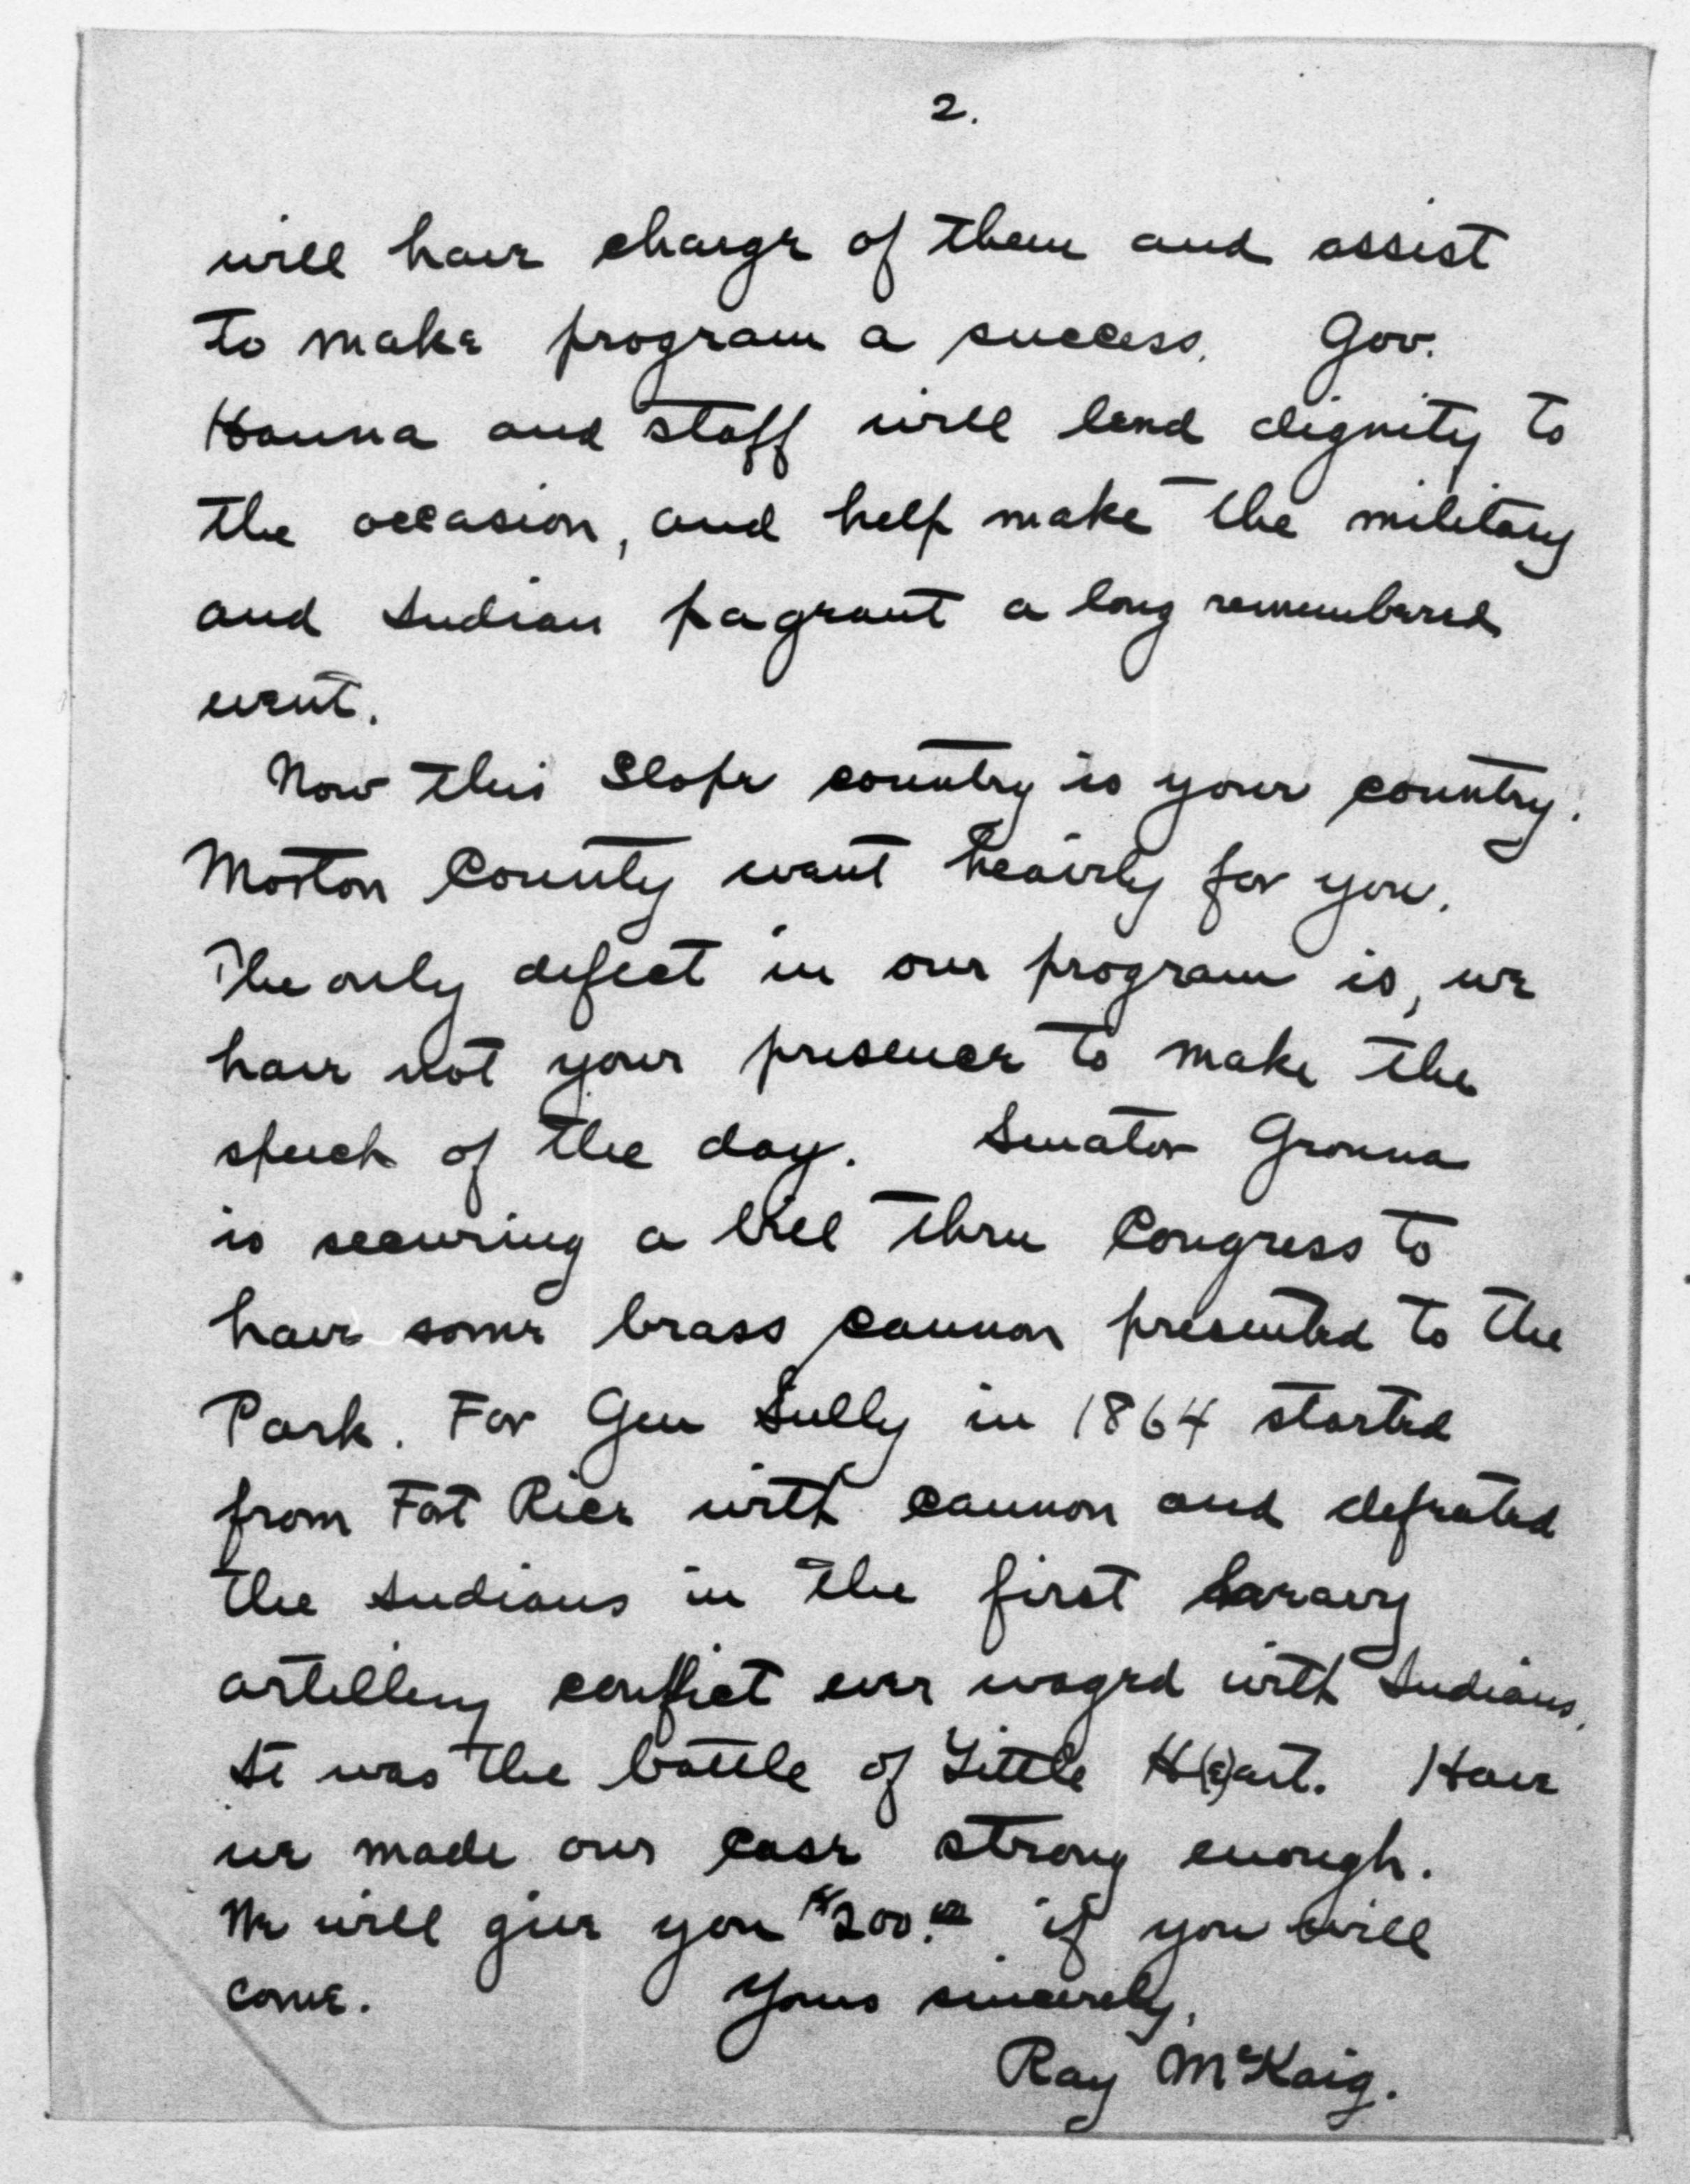 2.
will have charge of them and assist
to make program a success. Gov.
Hanna and staff will lend dignity to
the occasion, and help make the military
and Indian pagrant a long remembered
event.
Now this Slope country is your country.
Morton County went heavily for you.
The only defect in our program is, we
have not your presence to make the
speech of the day. Senator Gronna
is securing a bill thru Congress to
have some brass cannon presented to the
Park. For Gen Sully in 1864 started
from Fort Rice with cannon and defeated
the Indians in the first heavy
artillery conflict ever waged with Indians.
It was the battle of Little H(e)art. Have
we made our case strong enough.
We will give you $200.00 if you will
come. Yours sincerely,
Ray McKaig.